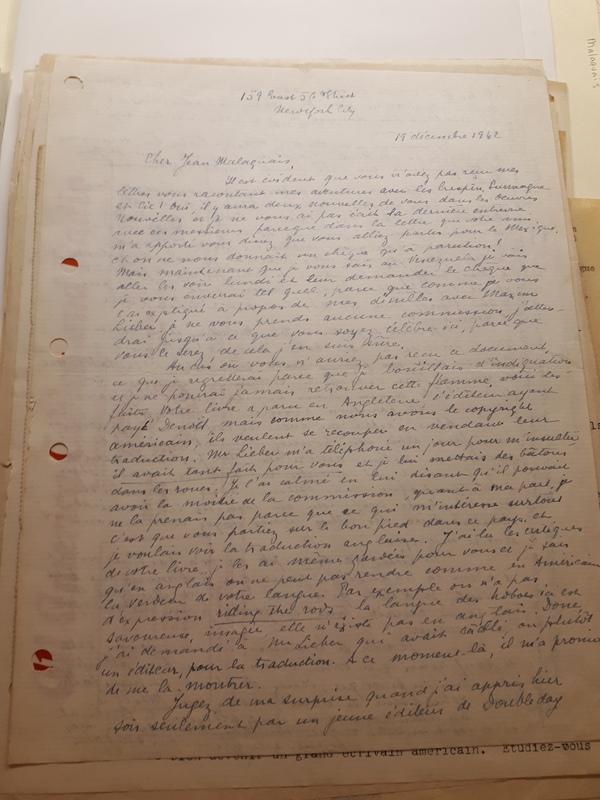 159 East 56 Street
New York City
19 décembre 1942
Cher Jean Malaquais,
Il est évident que vous n'avez pas reçu mes
lettres vous racontant mes aventures avec les Crespin,
et Cie! Oui, il y aura deux nouvelles de vous dans les Oeuvres
Nouvelles et je ne vous ai pas écrit la dernière entrevue
avec ces messieurs parceque dans la lettre que votre ami
m'a apporté vous disiez que vous alliez partir pour le Mexique,
et on ne nous donnait un chèque qu'à parution!
Mais maintenant que je vous sais au Venezuela je vais
aller les voir lundi et leur demander le chèque que
je vous enverrai tel quel, parce que comme je vous
l'ai expliqué à propos de mes démêlés avec Maxim
Lieber, je ne vous prends aucune commission, j'atten-
drai jusqu'à ce que vous soyez célèbre ici, parce que
vous le serez de cela j'en suis sûre.
Au cas où vous n'auriez pas reçu ce document,
ce que je regretterai parce que je bouillais d'indignation
et je ne pourrai jamais retrouver cette flamme, voici des
faits. Votre livre a paru en Angleterre, l'éditeur ayant
payé Denoël, mais comme nous avons le copyright
américain, ils veulent se recouper en vendant leur
traduction. Mr Lieber m'a téléphoné un jour pour m'insulter
il avait tant fait pour vous et je lui mettais des bâtons
dans les roues! Je l'ai calmé en lui disant qu'il pouvait
avoir la moitié de la commission, quant à ma part, je
ne la prenais pas parce que ce qui m'intéresse surtout
c'est que vous partiez sur le bon pied dans ce pays, et
je voulais voir la traduction anglaise. J'ai lu les critiques
de votre livre, je les ai même gardées pour vous et je sais
qu'en anglais on ne peut pas rendre comme en Américain
la verdeur de votre langue. Par exemple on n'a pas
d'expression riding the rods, la langue des hobos ici est
savoureuse, imagée, elle n'existe pas en anglais. Donc
j'ai demandé à Mr Lieber qui avait câblé, ou plutôt
un éditeur, pour la traduction. A ce moment-là, il m'a promis
de me la montrer.
Jugez de ma surprise quand j'ai appris hier
soir seulement par un jeune éditeur de Doubleday
un grand écrivain américain. Etudiez-vous
Malaquais